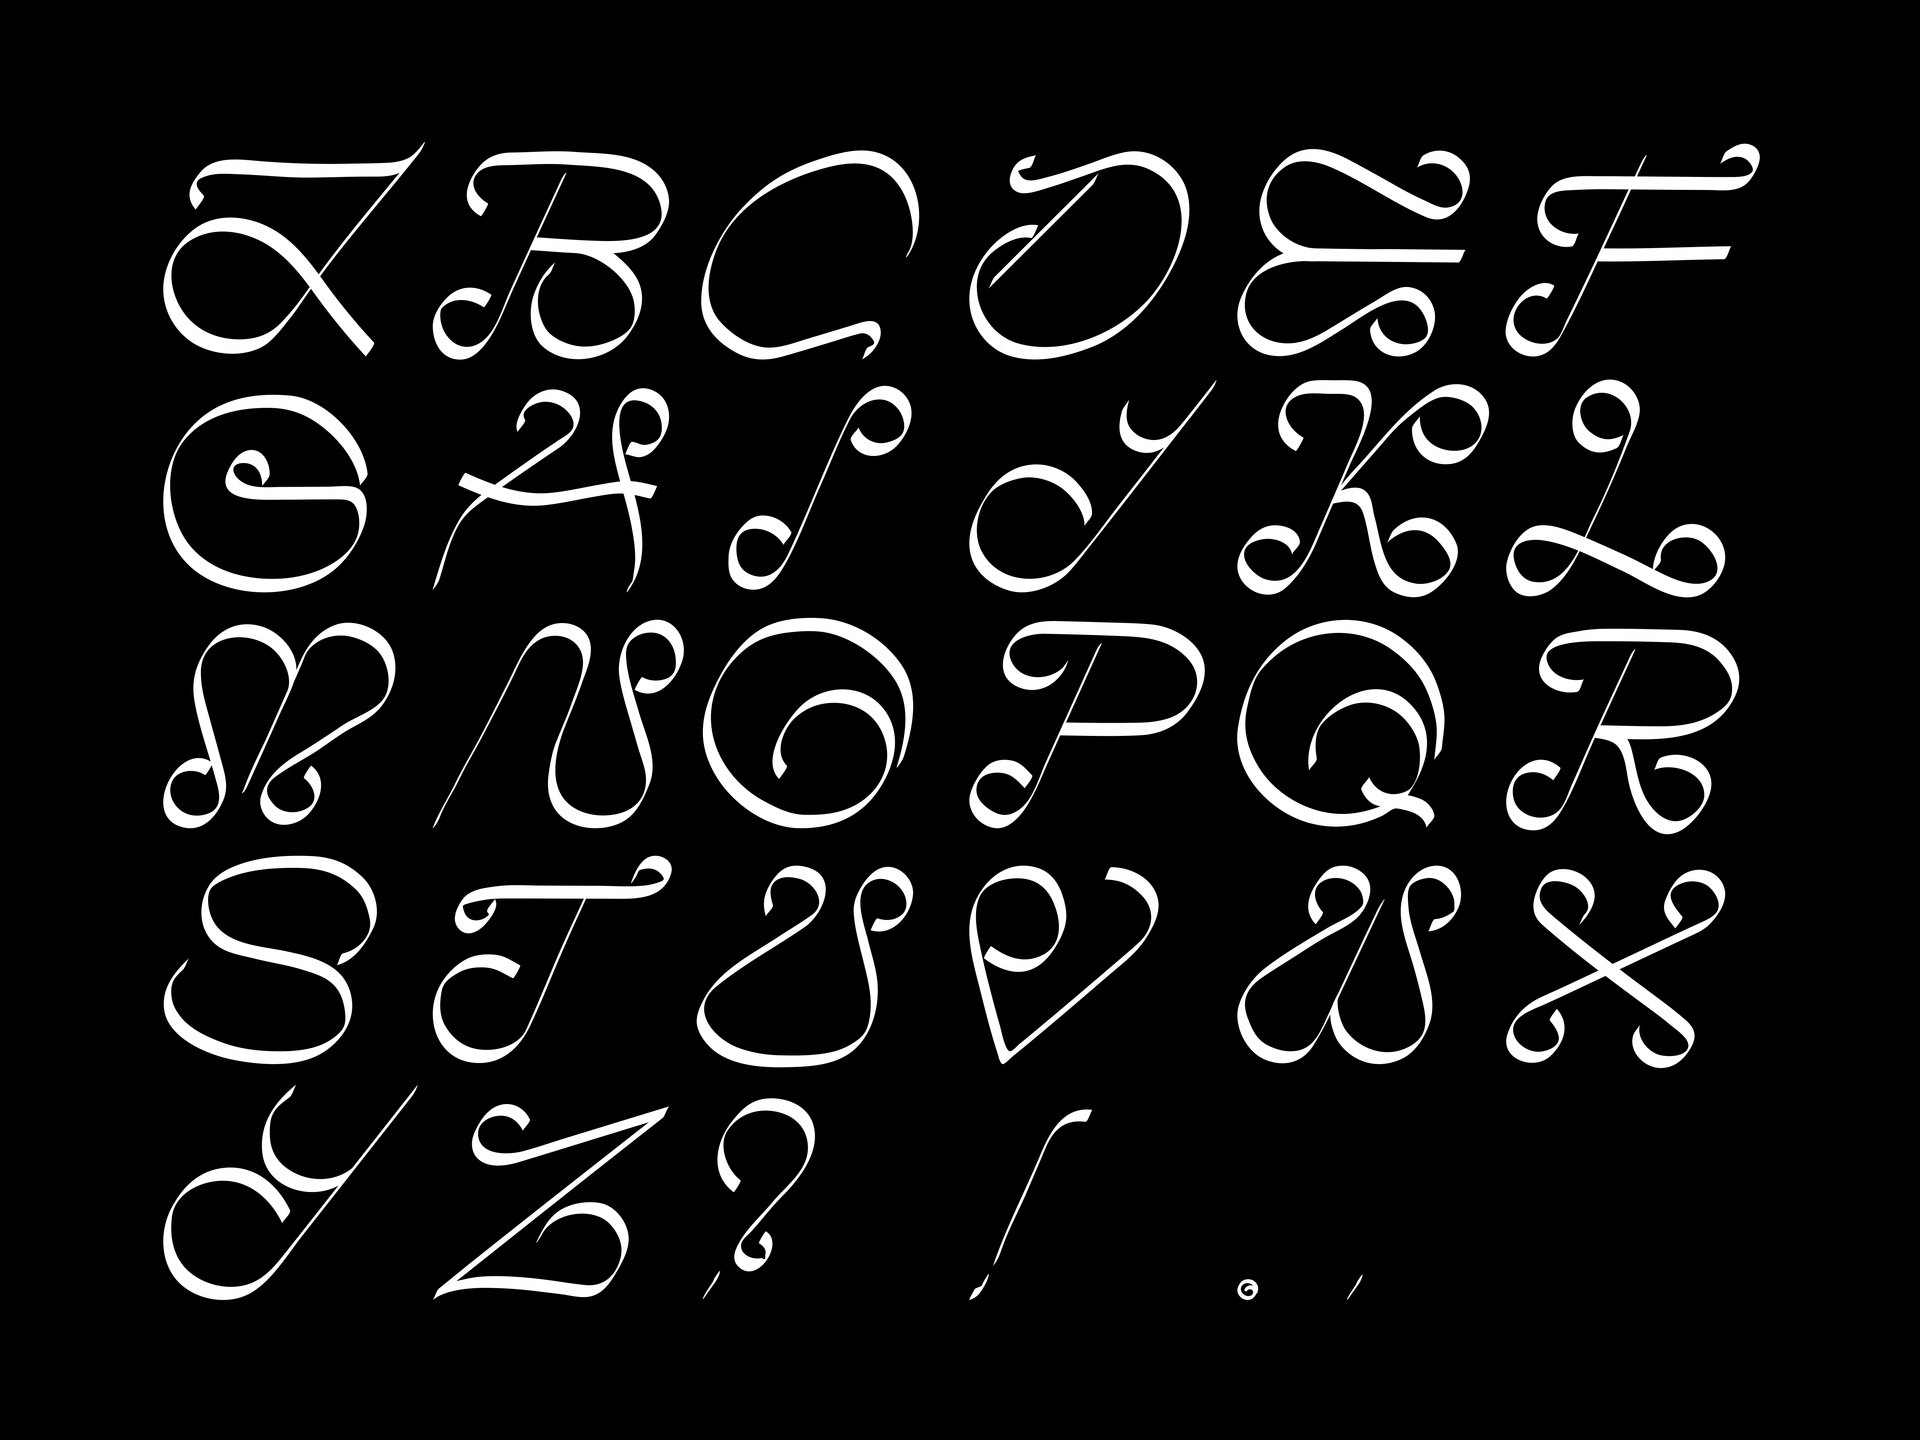 A B C D E F
G H I J K L
M N O P Q R
S T U V W X
Y Z ? ! . ,